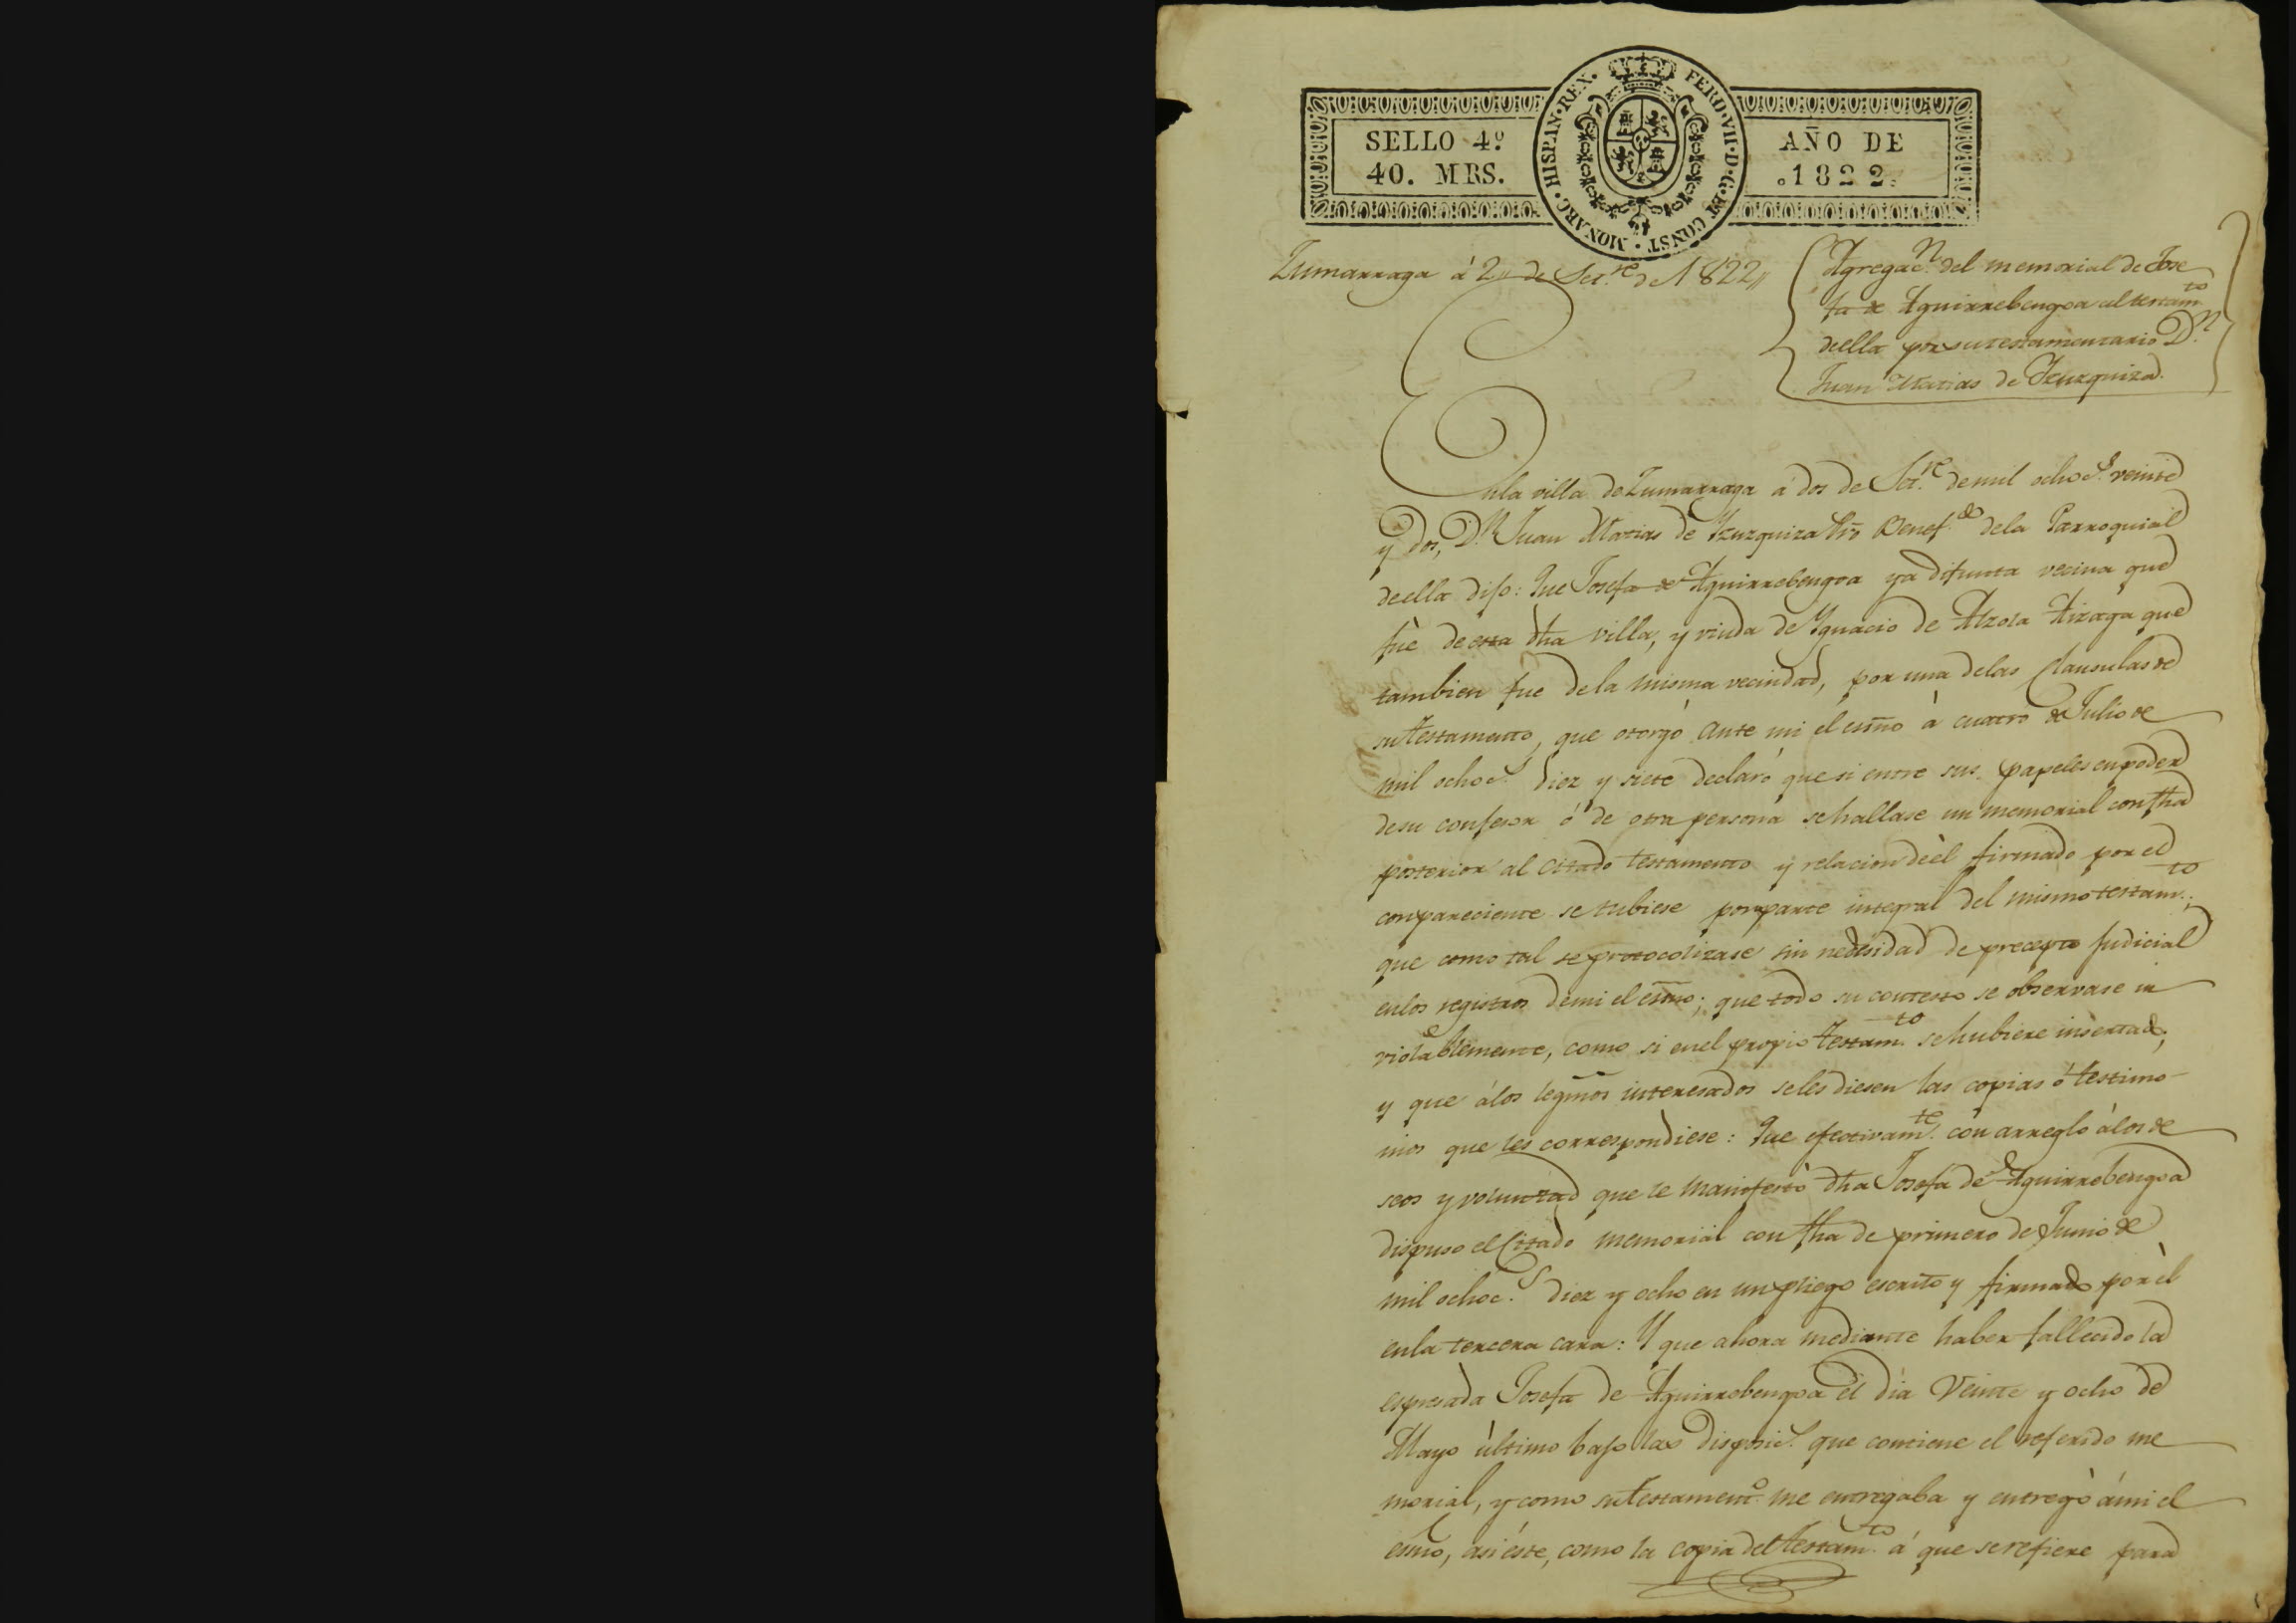 SELLO 4º
40. MRS.
HISPAN·REX· FERD·VII·D·G·ET CONST·MONARC·
AÑO DE
1822.
Zumarraga á 2,, de Set.re de 1822,,
Agregac.n del memorial de Jose
fa de Aguirrebengoa al testam.to
de ella por su testamentario D.n
Juan Matias de Yzuzquiza.
En la villa de Zumarraga á dos de Set.re de mil ochoc.s veinte
y dos, D.n Juan Matias de Yzuzquiza Pro Benef.do de la Parroquial
de ella dijo: Que Josefa de Aguirrebengoa ya difunta vecina que
fuè de esta dha villa, y viuda de Ygnacio de Alzola Aizaga que
tambien fue de la misma vecindad, por una de las Clausulas de
su testamento, que otorgó ante mi el esno à cuatro de Julio de
mil ochoc.s diez y siete declaró que si entre sus papeles en poder
de su confesor ó de otra persona se hallase un memorial con fha
posterior al citado testamento y relacion de èl firmado por el
conpareciente se tubiese por parte integral del mismo testam.to;
que como tal se protocolizase sin necesidad de precepto Judicial
en los registros de mi el esno; que todo su contesto se observase in
violablemente, como si en el propio testam.to se hubiere insertado,
y que á los legmos interesados se les diesen las copias ó testimo-
nios que les correspondiese: Que efectivam.te con arreglo à los de
seos y voluntad que le manifestò dha Josefa de Aguirrebengoa
dispuso el Citado memorial con fha de primero de Junio de
mil ochoc.s diez y ocho en un pliego escrito y firmado por èl
en la tercera cara: Y que ahora mediante haber fallecido la
espresada Josefa de Aguirrebengoa el dia Veinte y ocho de
Mayo ùltimo bajo las disposic.s que contiene el referido me
morial, y como su testament.o me entregaba y entregò á mi el
esno, asi éste, como la copia del testam.to á que se refiere para